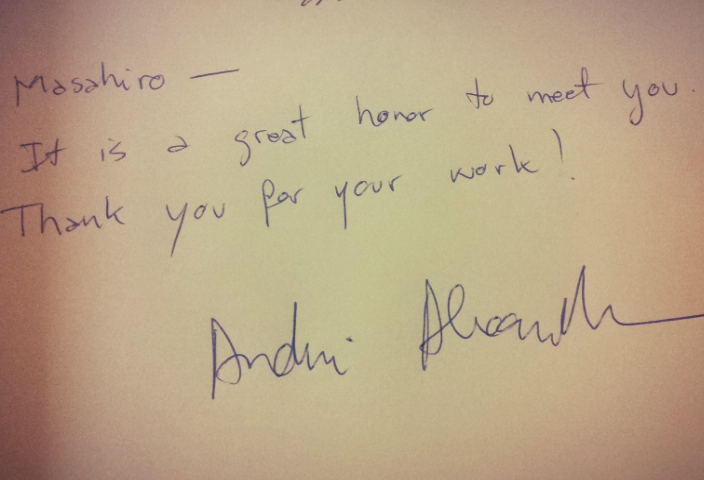 Masahiro —
It is a great honor to meet you.
Thank you for your work!
Andrei